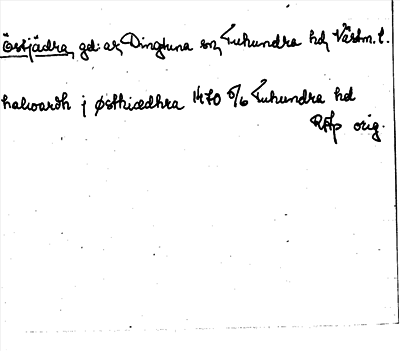 Östjädra, gd: ar, Dingtuna sn, Tuhundra hd, Västm. l.
halwardh j østhiædhra 1470 5/6 Tuhundra hd
RAp orig.